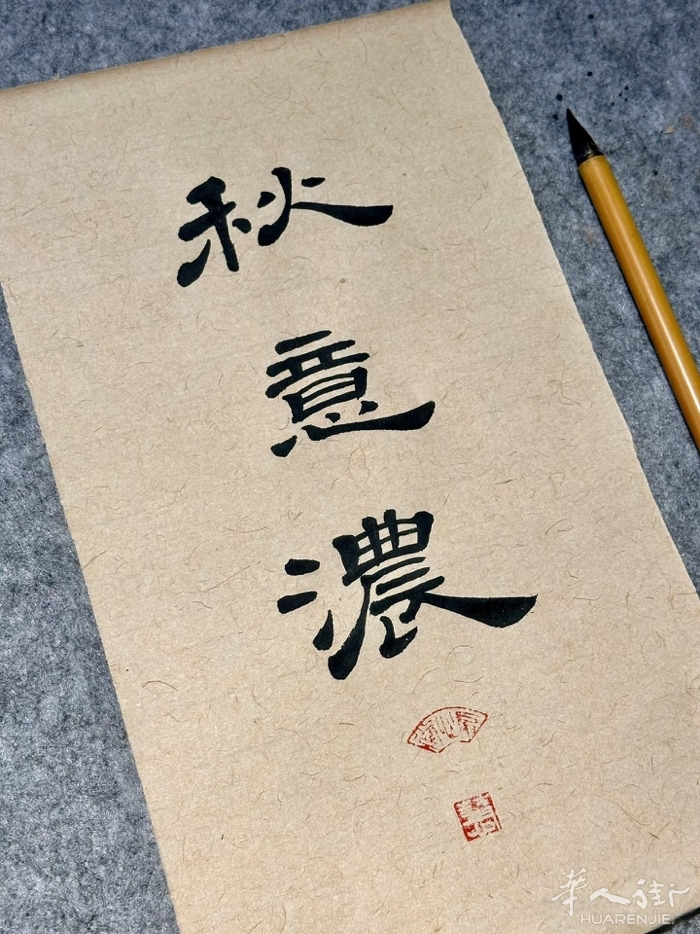 秋意濃
華人街
HUARENJIE.